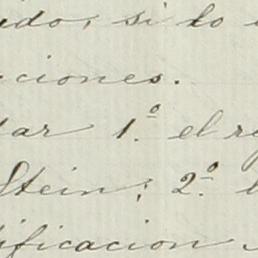 ido, si lo
ciones.
dar 1.º el re
Stein; 2.º
ificacion